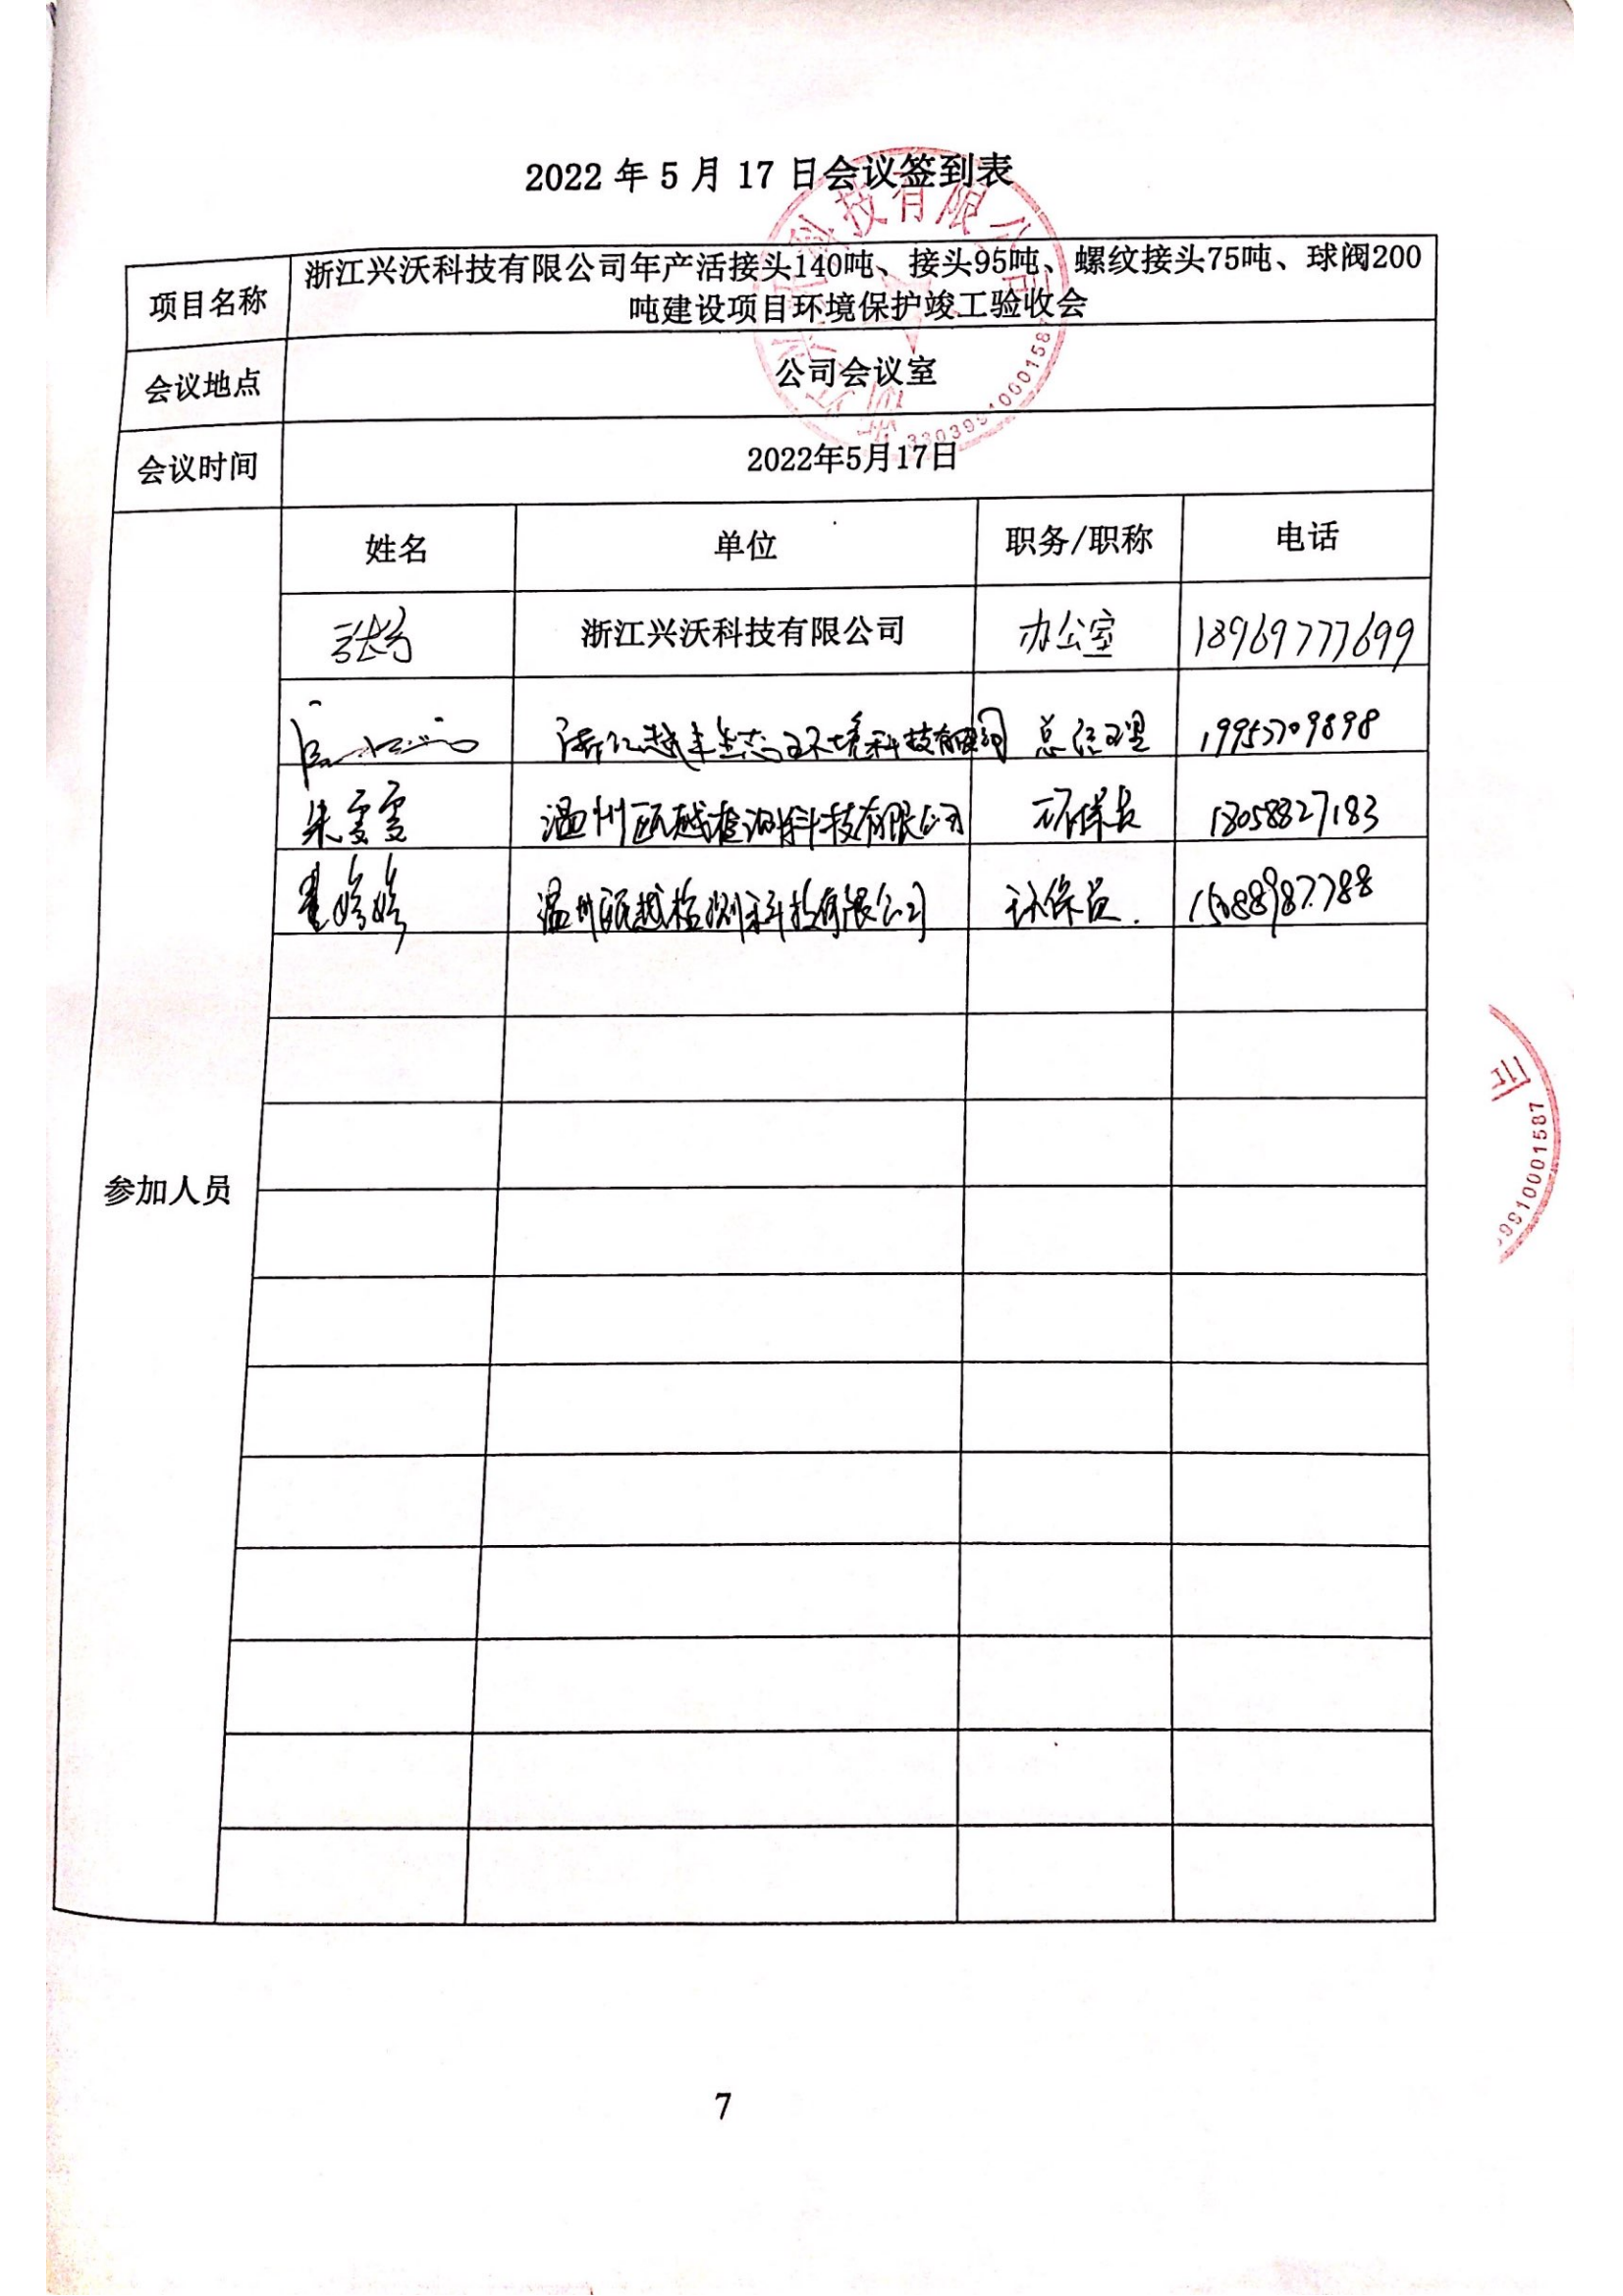 2022 年 5 月 17 日会议签到表
项目名称
浙江兴沃科技有限公司年产活接头140吨、接头95吨、螺纹接头75吨、球阀200
吨建设项目环境保护竣工验收会
会议地点
公司会议室
会议时间
2022年5月17日
参加人员
姓名 单位 职务/职称 电话
浙江兴沃科技有限公司 办公室 18969777699
总经理 19957709898
朱雯雯 温州瓯越检测科技有限公司 18058827183
婷婷 温州瓯越检测科技有限公司 环保员. 15088987788
科技有限公司
33039910001587
司
9910001587
7